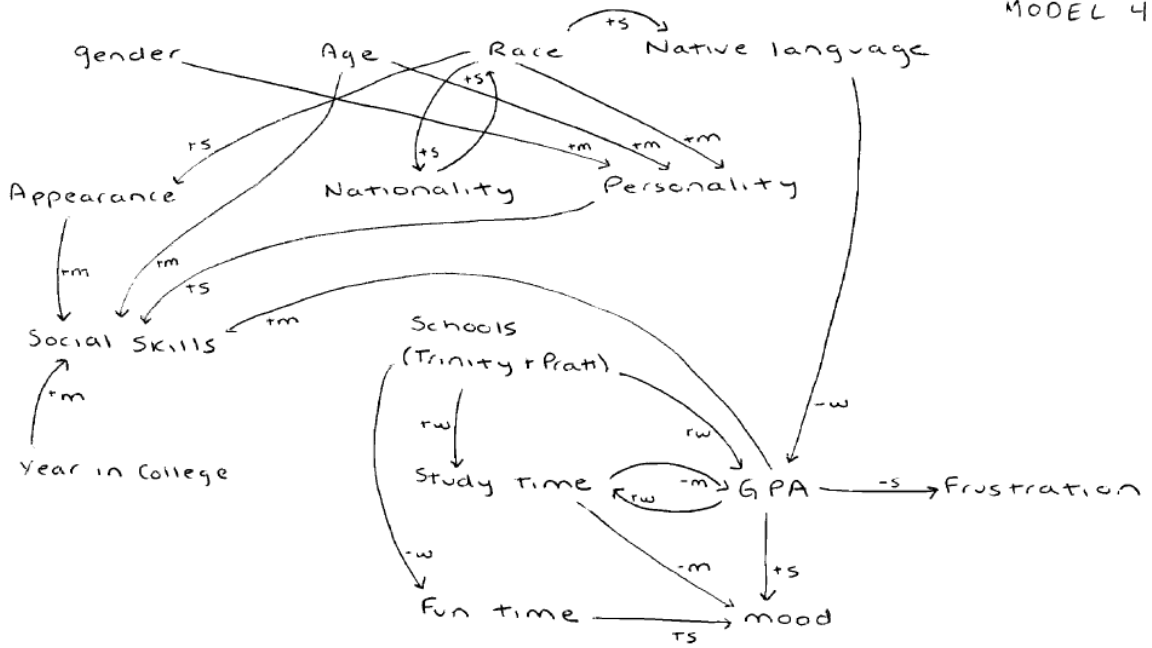 MODEL 4
gender Age Race +s Native language
+s
+s
+s +m +m +m
Appearance Nationality Personality
+m +m
+s
+m
Social Skills
Schools
(Trinity + Pratt)
+m
-w
+w +w
Year in College
Study time -m GPA -s Frustration
+w
-w -m +s
Fun time +s mood